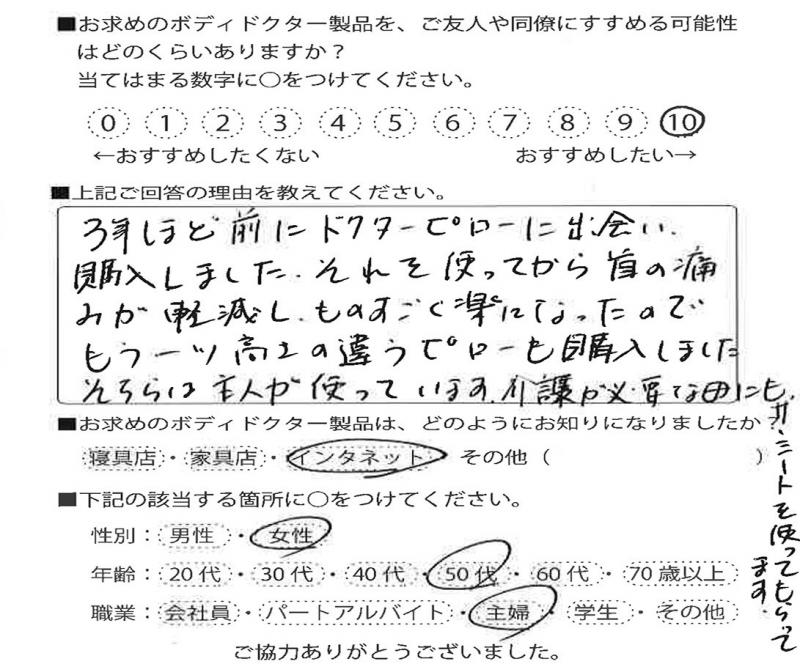 ■お求めのボディドクター製品を、ご友人や同僚にすすめる可能性
はどのくらいありますか？
当てはまる数字に○をつけてください。
0 1 2 3 4 5 6 7 8 9 10
←おすすめしたくない おすすめしたい→
■上記ご回答の理由を教えてください。
3年ほど前にドクターピローに出会い、
購入しました。それを使ってから首の痛
みが軽減し、ものすごく楽になったので
もう一ツ高さの違うピローも購入しました
そちらは主人が使っています。介護が必要な母にも、
シートを使ってもらって
ます。
■お求めのボディドクター製品は、どのようにお知りになりましたか？
寝具店・家具店・インタネット・その他（ ）
■下記の該当する箇所に○をつけてください。
性別：男性・女性
年齢：20代・30代・40代・50代・60代・70歳以上
職業：会社員・パートアルバイト・主婦・学生・その他
ご協力ありがとうございました。